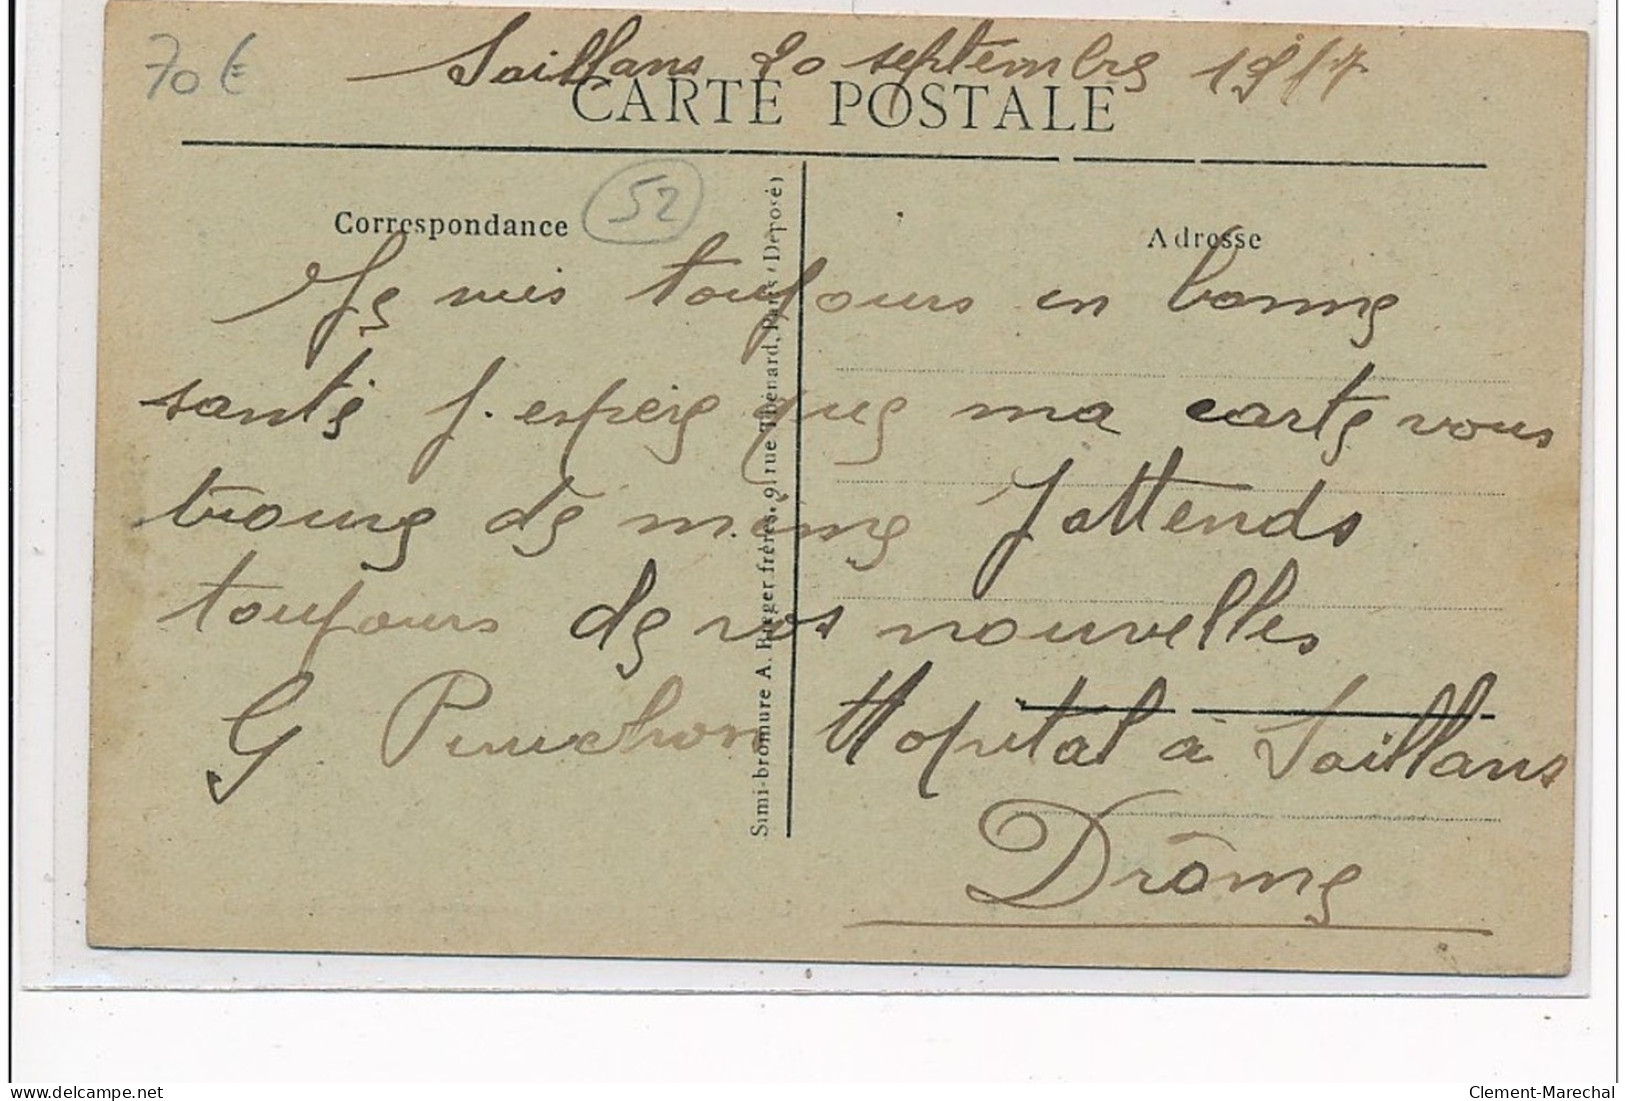 70€
Saillans 20 septembre 1917
CARTE POSTALE
52
Correspondance
Adresse
Je vais toujours en bonne
santé j.espère que ma carte vous
trouve de meme Jattends
toujours de vos nouvelles
G Hopital à Saillans
Drôme
Simi-bromure A. Breger frères, 9, rue Thénard, Paris (Déposé)
www.delcampe.net
Clement-Marechal